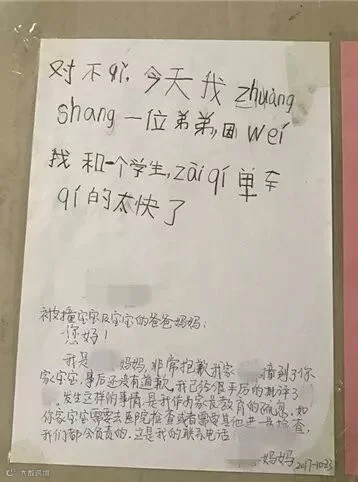 对不qǐ，今天我 zhuàng
shang 一位弟弟，因 wéi
我和一个学生，zài qí 单车
qí 的太快了
被撞宝宝及宝宝的爸爸妈妈：
您好！
我是 妈妈，非常抱歉我家 撞到了你
家宝宝，事后还没有道歉。我已经很严厉的批评了
。发生这样的事情是我作为家长教育的疏忽，如
你家宝宝需要去医院检查或者需要其他进一步检查，
我们都会负责的，这是我的联系电话
妈妈 2017-10.23